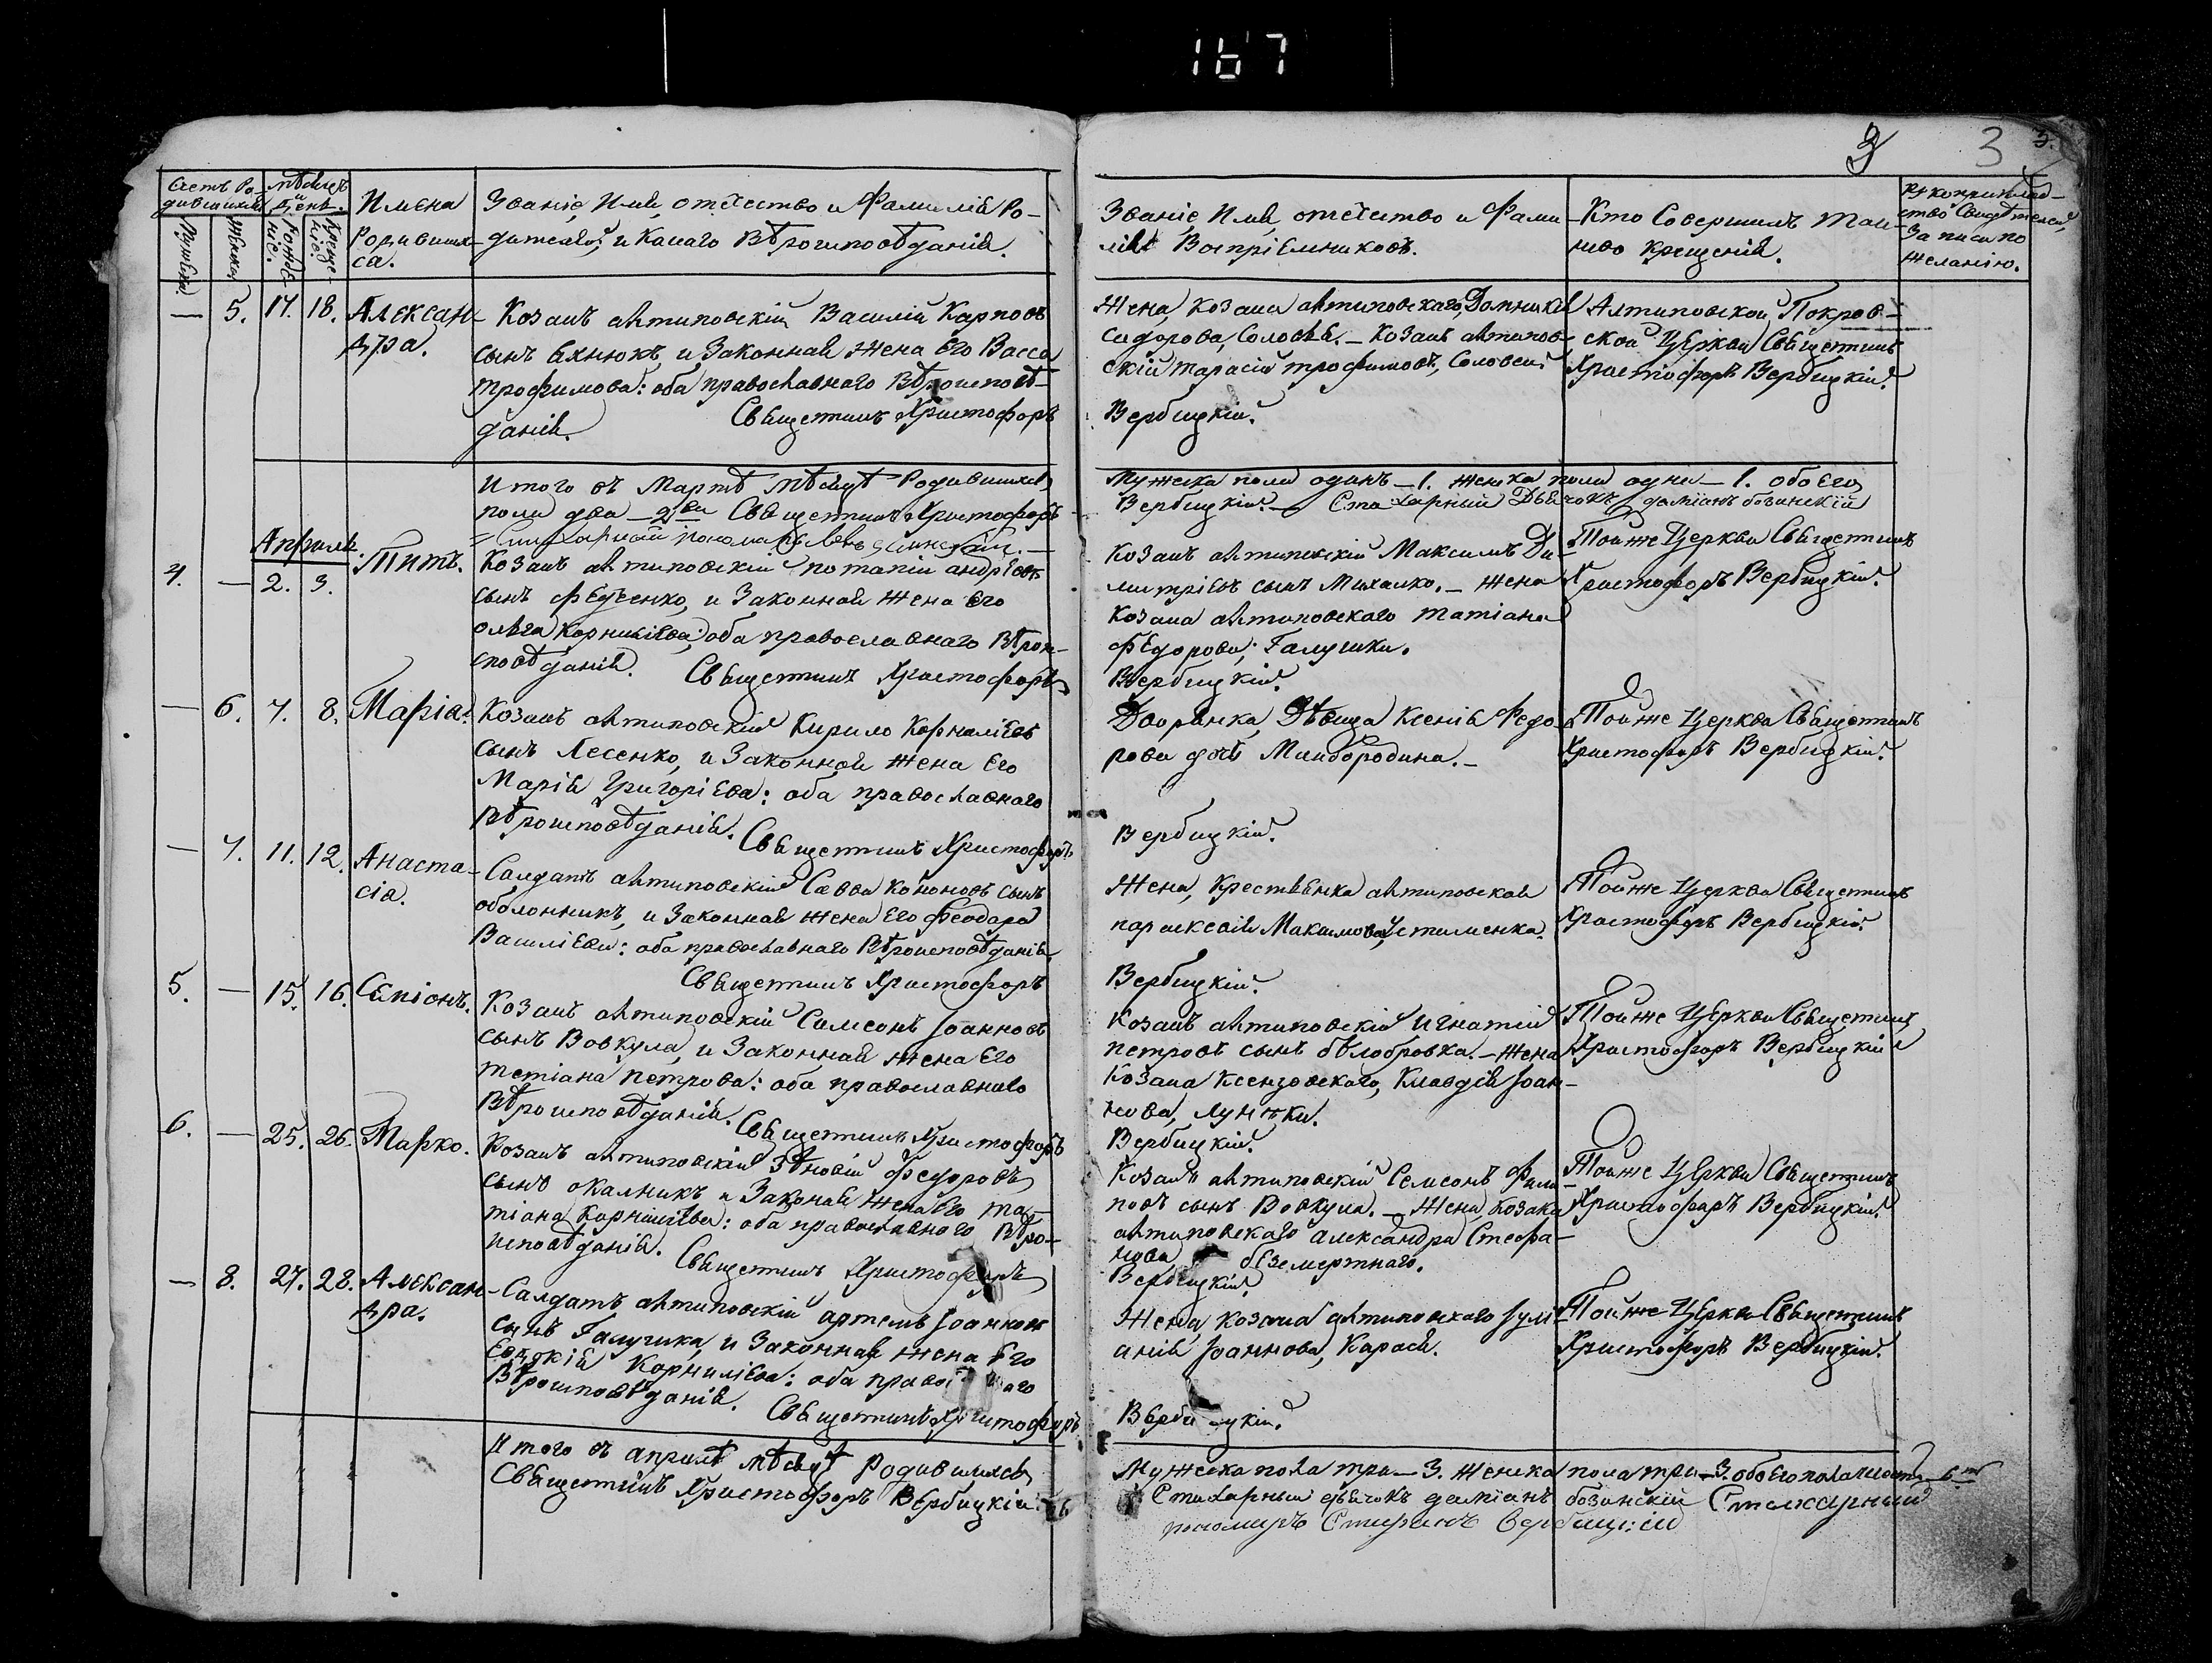 167
3 3 3.
Счетъ Ро-
дившихся
Мѣсяцъ
и
День.
Мужеска.
Женска.
Рожде-
ніе.
Креще-
ніе.
Имена
Родивших-
ся.
Званіе, Имя, отчество и Фамилія Ро-
дителей, и Какаго Вѣроисповѣданія.
Званіе, Имя, отчество и Фами-
лія Воспріемниковъ.
Кто Совершилъ Таи-
нство Крещенія.
Рукоприклад-
ство Свидѣтелей,
Записи по
Желанію.
— 5. 17. 18. Алексан-
дра.
Козакъ антиповскій Василій Карповъ
сынъ Вхнюкъ, и Законная Жена Его Васса
Трофимова: оба православнаго Вѣроисповѣ-
данія. Священникъ Христофоръ
Жена Козака антиповскаго Домникія
Сидорова, Соловья. — Козакъ антипов-
скій тарасій трофимовъ, Соловей
Вербицкій.
Антиповской Покров-
ской Церкви Священникъ
Христофоръ Вербицкій.
Итого въ Мартѣ Мѣсяцѣ Родившихся
пола два — 2ва Священникъ Христофоръ
Мужеска пола одинъ — 1. Женска пола одна — 1. обоего
Вербицкій. — Стихарный Дьячокъ даміанъ бозинскій
Апрель.
4. — 2. 3. Титъ.
Козакъ антиповскій потапій андреевъ
сынъ Федченко, и Законная Жена Его
олѣга Корниліева; оба православнаго Вѣрои-
сповѣданія. Священникъ Христофоръ
Козакъ антиповскій Максимъ Ди-
митріевъ сынъ Михалко. — Жена
Козака антиповскаго татіана
Федорова, Галушки.
Вербицкій.
Тойже Церкви Священникъ
Христофоръ Вербицкій.
— 6. 7. 8. Марія.
Козакъ антиповскій Кирило Корниліевъ
сынъ Лесенко, и Законная Жена Его
Марія Григоріева: оба православнаго
Вѣроисповѣданія. Священникъ Христофоръ
Дворянка, Дѣвица Ксенія Федо-
рова дочь Миндородина. —
Вербицкій.
Тойже Церкви Священникъ
Христофоръ Вербицкій.
— 7. 11. 12. Анаста-
сія.
Салдатъ антиповскій Савва Кононовъ сынъ
оболонникъ, и Законная Жена Его Феодора
Василіева: оба православнаго Вѣроисповѣданія.
Священникъ Христофоръ
Жена, Крестьянка антиповская
параскевія Максимова, Устименка.
Вербицкій.
Тойже Церкви Священникъ
Христофоръ Вербицкій.
5. — 15. 16. Сепіонъ.
Козакъ антиповскій Симеонъ Іоанновъ
сынъ Вовкула, и Законная Жена Его
тетіана петрова: оба православнаго
Вѣроисповѣданія. Священникъ Христофоръ
Козакъ антиповскій Игнатій
петровъ сынъ бѣлобровка. — Жена
Козака Ксензовскаго, Клавдія Іоан-
нова, Лунтки.
Вербицкій.
Тойже Церкви Священникъ
Христофоръ Вербицкій
6. — 25. 26. Марко.
Козакъ антиповскій Зѣновій Федоровъ
сынъ окалникъ и Законая Жена Его та-
тіана Корниліева: оба православного Вѣро-
исповѣданія. Священникъ Христофоръ
Козакъ антиповскій Семеонъ Фили-
повъ сынъ Вовкула. — Жена, Козака
антиповскаго александра Стефа-
нова, безмертнаго.
Вербицкій.
Тойже Церкви Священникъ
Христофоръ Вербицкій.
— 8. 27. 28. Алексан-
дра.
Салдатъ антиповскій артемъ Іоанновъ
сынъ Галушка, и Законная Жена Его
Евдокія Корниліева: оба право наго
Вѣроисповѣданія. Священникъ Христофоръ
Жена, Козака антиповскаго Іулі-
анія Іоаннова, Карася.
Верби цкій.
Тойже Церкви Священникъ
Христофоръ Вербицкій.
Итого въ априлѣ мѣсяцѣ Родившихся
Священникъ Христофоръ Вербицкій
Мужеска пола три — 3. Женска пола три — 3. обоего пола шесть — 6ть
Стихарный дьячокъ даміанъ бозинскій Стихарный
пономаръ Стефанъ Вербицкій